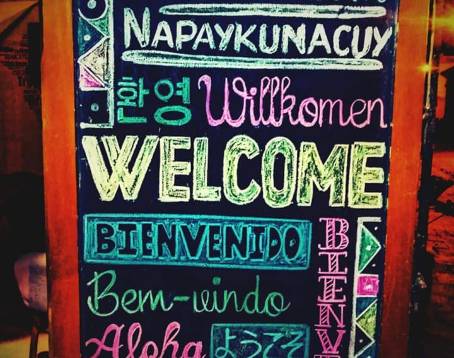 NAPAYKUNACUY
환영 Willkomen
WELCOME
BIENVENIDO
Bem-vindo
Aloha ようこそ
BIENV